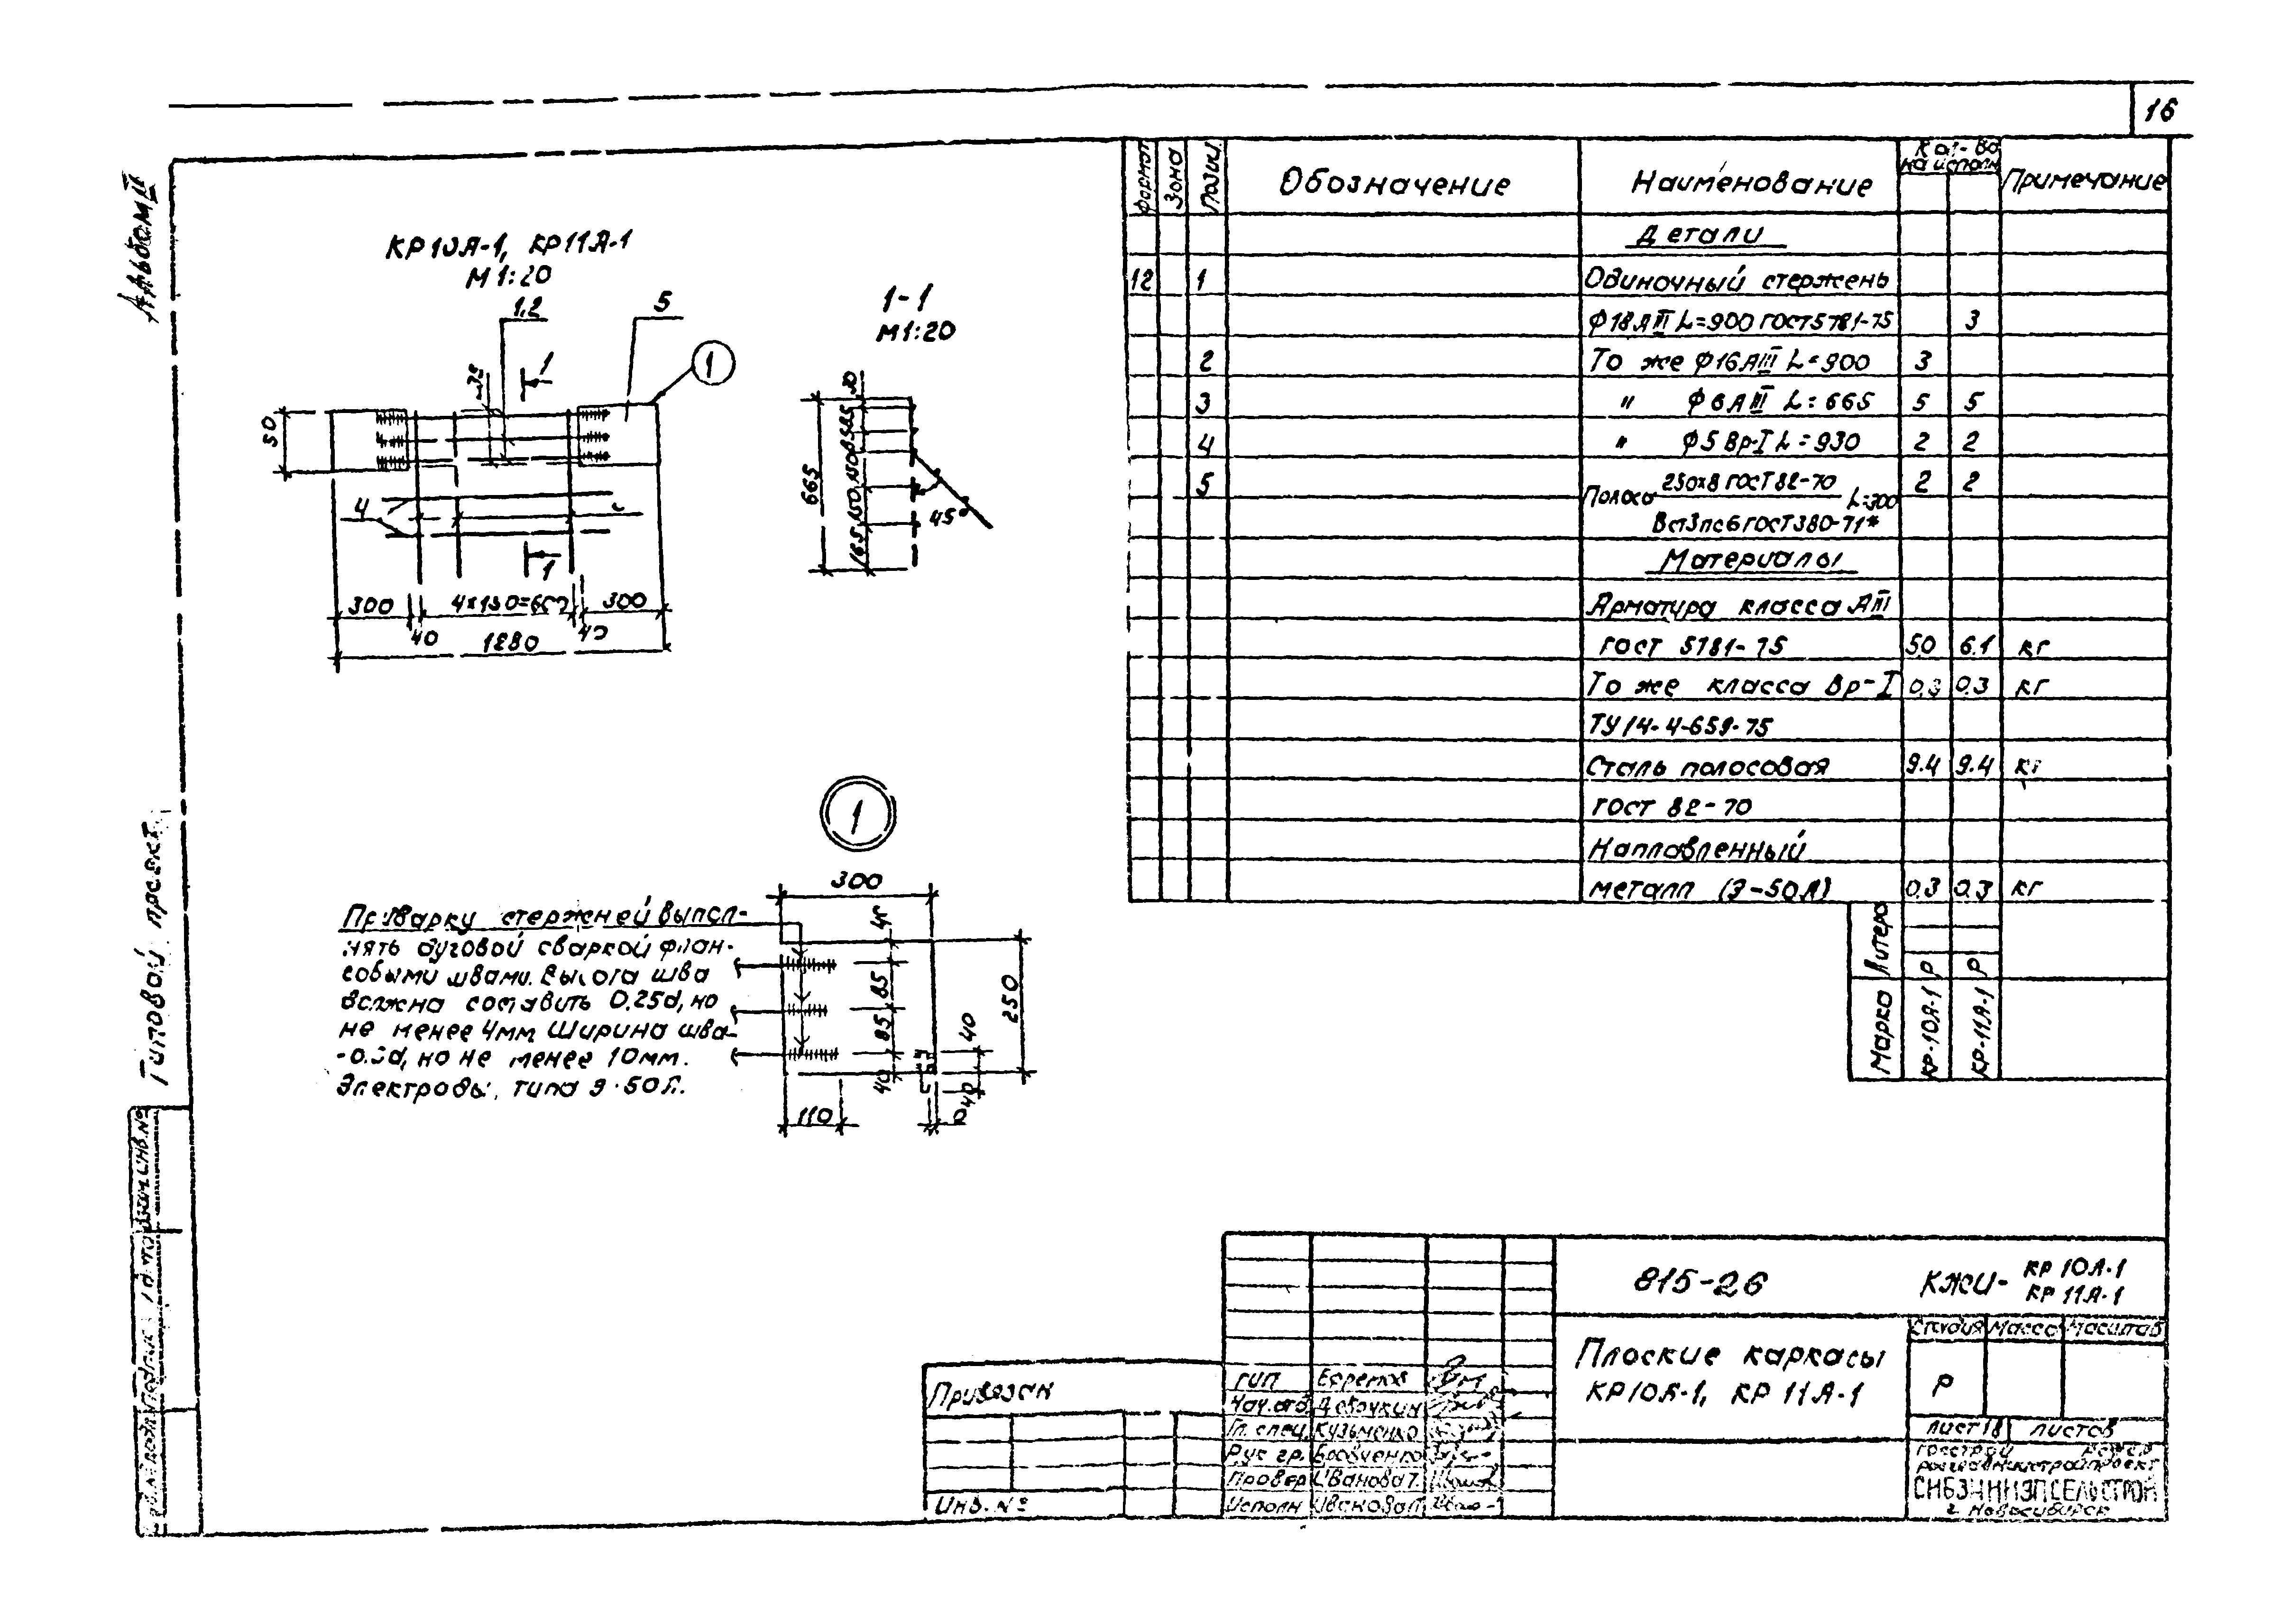 16
Альбом II
Типовой проект
КР10А-1, КР11А-1
М1:20
1.2
5
1
1
50
4
1
300
300
40
40
1280
1-1
М1:20
665
45°
1
300
Приварку стержней выпол-
нять дуговой сваркой флан-
говыми швами. Высота шва
должна составить 0.25d, но
не менее 4мм Ширина шва-
но не менее 10мм.
Электроды, типа Э-50А.
85
85
40
250
40
40
110
Формат
Зона
Позиц.
Обозначение
Наименование
Кол-во
на исполн
Примечание
Детали
12 1 Одиночный стержень
Ф18АIII L=900 ГОСТ5781-75 3
2 То же Ф16АIII L=900 3
3 " Ф6АIII L=665 5 5
4 " Ф5Вр-I L=930 2 2
5 Полоса 250х8 ГОСТ 82-70 L=300 2 2
Вст3пс6 ГОСТ380-71*
Материалы
Арматура класса АIII
ГОСТ 5781-75 50 6.1 кг
То же класса Вр-I 0.3 0.3 кг
ТУ14-4-659-75
Сталь полосовая 9.4 9.4 кг
ГОСТ 82-70
Наплавленный
металл (Э-50А) 0.3 0.3 кг
Литера Р Р
Марка КР-10А-1 КР-11А-1
815-26
КЖИ- КР10А-1
КР11А-1
Плоские каркасы
КР10А-1, КР11А-1
Стадия Масса Масштаб
Р
Лист 18 Листов
СИБЗНИИЭПСЕЛЬСТРОЙ
г. Новосибирск
Привязан
Инв. №
ГИП
Нач.отд.
Гл. спец. Кузьменко
Рук. гр.
Провер Иванова Т.
Исполн